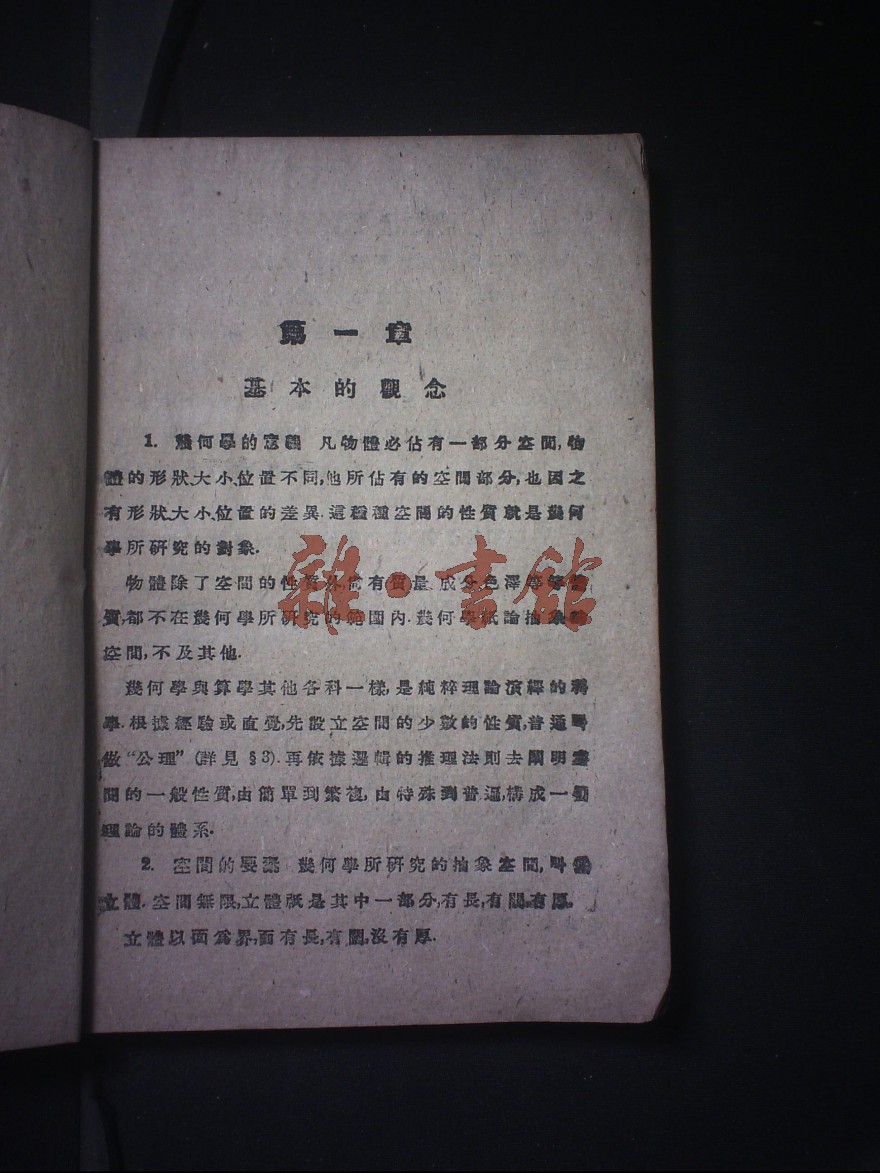 第一章
基本的觀念
1. 幾何學的定義 凡物體必佔有一部分空間,物
體的形狀、大小、位置不同,他所佔有的空間部分,也因之
有形狀、大小、位置的差異.這種種空間的性質就是幾何
學所研究的對象.
物體除了空間的性質外,尚有質量,成分,色澤等等
質,都不在幾何學所研究的範圍內.幾何學祇論抽象
空間,不及其他.
幾何學與算學其他各科一樣,是純粹理論演繹的科
學.根據經驗或直覺,先設立空間的少數的性質,普通叫
做“公理”(詳見§3).再依據邏輯的推理法則去闡明空
間的一般性質,由簡單到繁複,由特殊到普遍,構成一個
理論的體系.
2. 空間的要素 幾何學所研究的抽象空間,叫做
立體.空間無限,立體祇是其中一部分,有長,有闊,有厚.
立體以面為界,面有長,有闊,沒有厚.
雜·書館